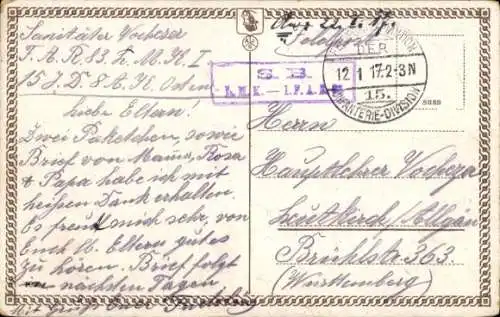 Sanitäter Vochezer
F.A.R. 83. L.M.K I
15 J.D. 8 A.K. Osten
Liebe Eltern!
Zwei Paketchen, sowie
Brief von Mama, Rosa
+ Papa habe ich mit
heißen Dank erhalten.
Es freut mich sehr, von
Euch lb. Eltern gutes
zu hören. Brief folgt
in nächsten Tagen.
Mit Gruß Euer
Feldpost
DER
12 1 17.2-3N
15.
INFANTERIE-DIVISION
S. B.
Herrn
Hauptlehrer Vochezer
Leutkirch/Allgäu
Brühlstr 363.
(Württemberg)